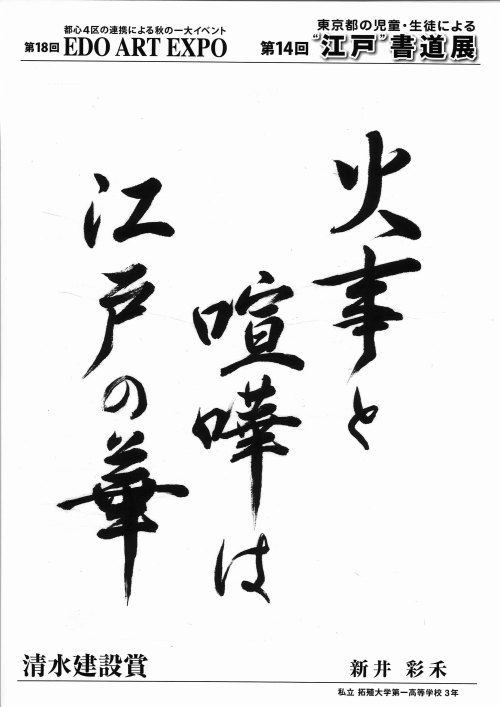 都心4区の連携による秋の一大イベント
第18回 EDO ART EXPO
東京都の児童・生徒による
第14回 "江戸"書道展
火事と
喧嘩は
江戸の華
清水建設賞
新井 彩禾
私立 拓殖大学第一高等学校 3年